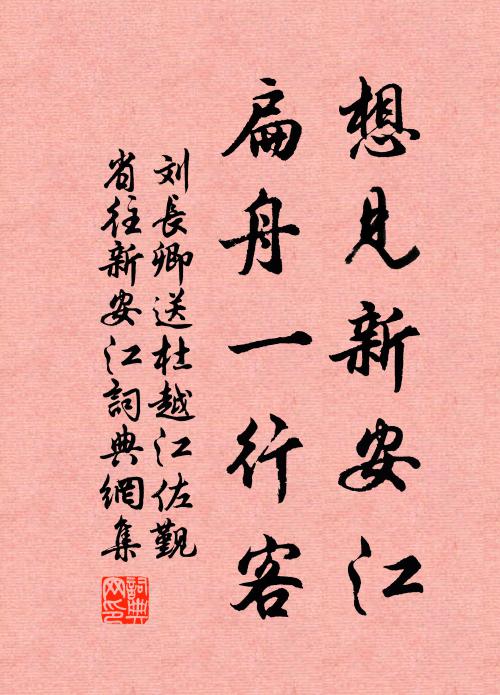 想见新安江
扁舟一行客
刘長卿送杜越江佐觐
省往新安江詞典網集
詞典
网印